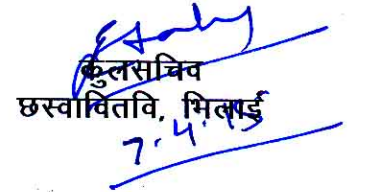 कुलसचिव
छस्वावितवि, भिलाई
7.4.15